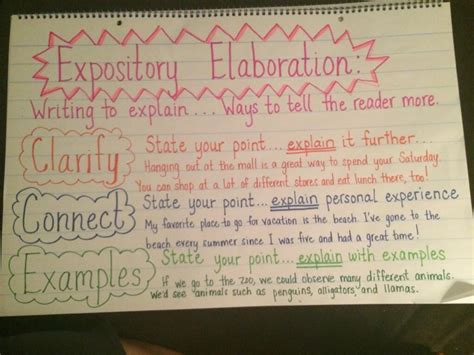 Expository Elaboration:
Writing to explain... Ways to tell the reader more.
Clarify
State your point... explain it further...
Hanging out at the mall is a great way to spend your Saturday.
You can shop at a lot of different stores and eat lunch there, too!
Connect
State your point... explain personal experience
My favorite place to go for vacation is the beach. I've gone to the
beach every summer since I was five and had a great time!
Examples
State your point... explain with examples
If we go to the zoo, we could observe many different animals.
We'd see animals such as penguins, alligators, and llamas.